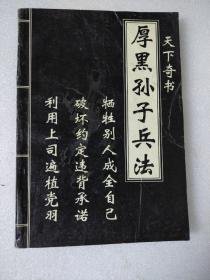 天下奇书
厚黑孙子兵法
牺牲别人成全自己
破坏约定违背承诺
利用上司遍植党羽